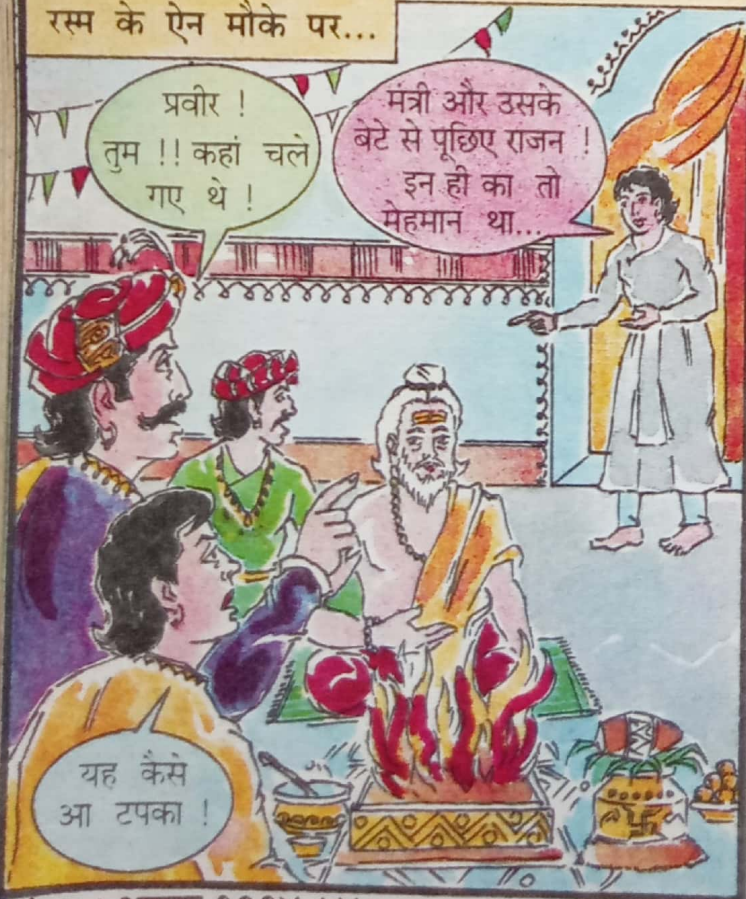 रस्म के ऐन मौके पर...
प्रवीर !
तुम !! कहां चले
गए थे !
मंत्री और उसके
बेटे से पूछिए राजन !
इन ही का तो
मेहमान था...
यह कैसे
आ टपका !